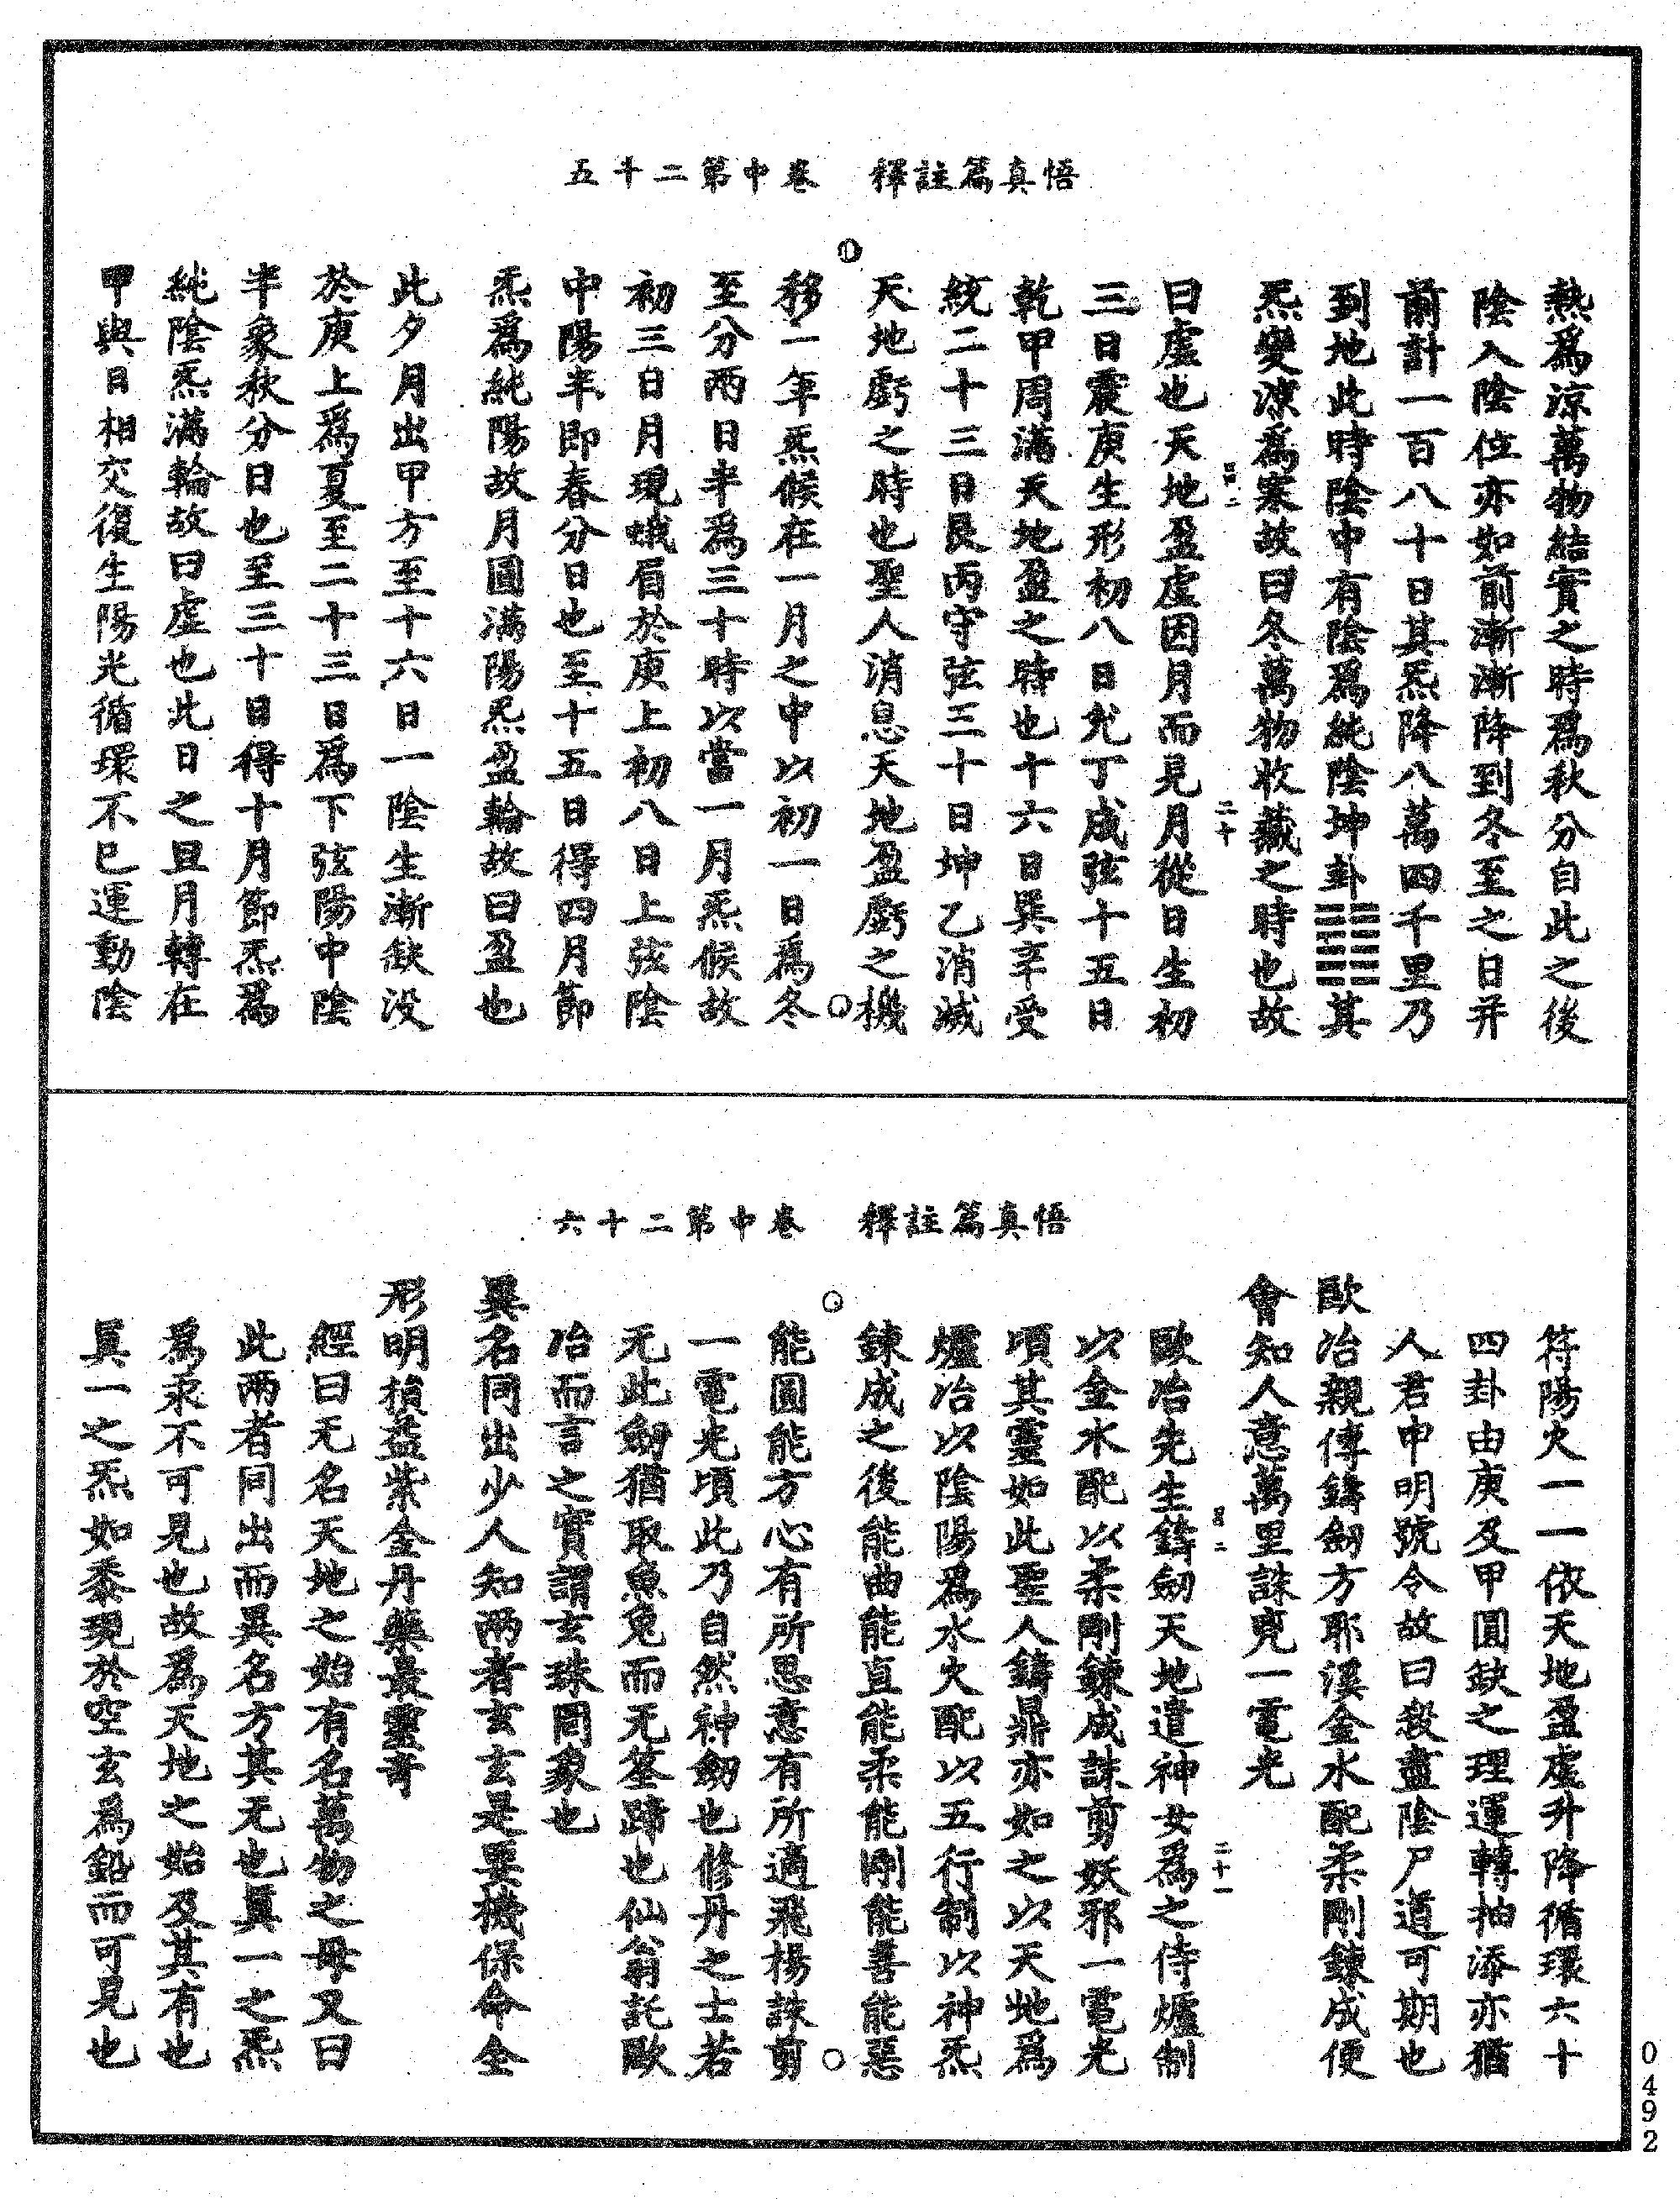 悟真篇註釋　卷中第二十五
熱爲涼萬物結實之時爲秋分自此之後
陰入陰位亦如前漸漸降到冬至之日并
前計一百八十日其炁降八萬四千里乃
到地此時陰中有陰爲純陰坤卦䷁其
炁變凉爲寒故曰冬萬物收藏之時也故
曰虛也天地盈虛因月而見月從日生初
三日震庚生形初八日兊丁成弦十五日
乾甲周滿天地盈之時也十六日巽辛受
統二十三日艮丙守弦三十日坤乙消滅
天地虧之時也聖人消息天地盈虧之機
移一年炁候在一月之中以初一日爲冬
至分兩日半爲三十時以當一月炁候故
初三日月現蛾眉於庚上初八日上弦陰
中陽半即春分日也至十五日得四月節
炁爲純陽故月圓滿陽炁盈輪故曰盈也
此夕月出甲方至十六日一陰生漸缺没
於庚上爲夏至二十三日爲下弦陽中陰
半象秋分日也至三十日得十月節炁爲
純陰炁滿輪故曰虛也此日之旦月轉在
甲與日相交復生陽光循環不已運動陰
二十
悟真篇註釋　卷中第二十六
符陽火一一依天地盈虛升降循環六十
四卦由庚及甲圓缺之理運轉抽添亦猶
人君申明號令故曰殺盡陰尸道可期也
歐冶親傳鑄劒方耶溪金水配柔剛鍊成便
會知人意萬里誅兇一電光
歐冶先生鑄劒天地遣神女爲之侍爐制
以金水配以柔剛鍊成誅剪妖邪一電光
頃其靈如此聖人鑄鼎亦如之以天地爲
爐冶以陰陽爲水火配以五行制以神炁
鍊成之後能曲能直能柔能剛能善能惡
能圓能方心有所思意有所適飛楊誅剪
一電光頃此乃自然神劒也修丹之士若
无此劒猶取魚兔而无筌蹄也仙翁託歐
冶而言之實謂玄珠罔象也
異名同出少人知兩者玄玄是要機保命全
形明損益紫金丹藥最靈奇
經曰无名天地之始有名萬物之母又曰
此兩者同出而異名方其无也真一之炁
爲汞不可見也故爲天地之始及其有也
真一之炁如黍現於空玄爲鉛而可見也
二十一
0492